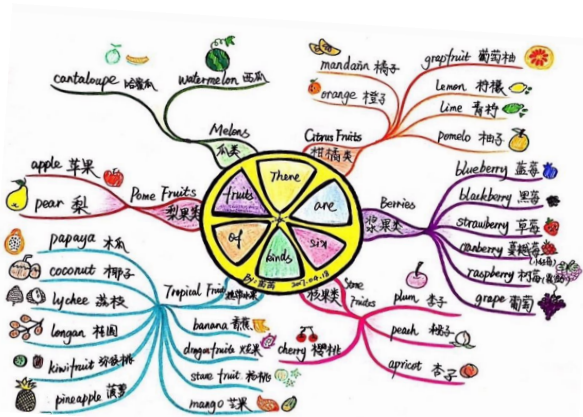 There are six kinds of fruits
By: 茜茜 2017.04.18
Melons
瓜类
cantaloupe 哈蜜瓜
watermelon 西瓜
Citrus Fruits
柑橘类
mandarin 橘子
orange 橙子
grapfruit 葡萄柚
Lemon 柠檬
lime 青柠
pomelo 柚子
Berries
浆果类
blueberry 蓝莓
blackberry 黑莓
strawberry 草莓
cranberry 蔓越莓
raspberry 树莓
grape 葡萄
Stone Fruits
核果类
plum 李子
peach 桃子
apricot 杏子
cherry 樱桃
Tropical Fruits
热带水果
papaya 木瓜
coconut 椰子
lychee 荔枝
longan 桂圆
kiwifruit 猕猴桃
pineapple 菠萝
banana 香蕉
dragonfruits 火龙果
star fruit 杨桃
mango 芒果
Pome Fruits
梨果类
apple 苹果
pear 梨